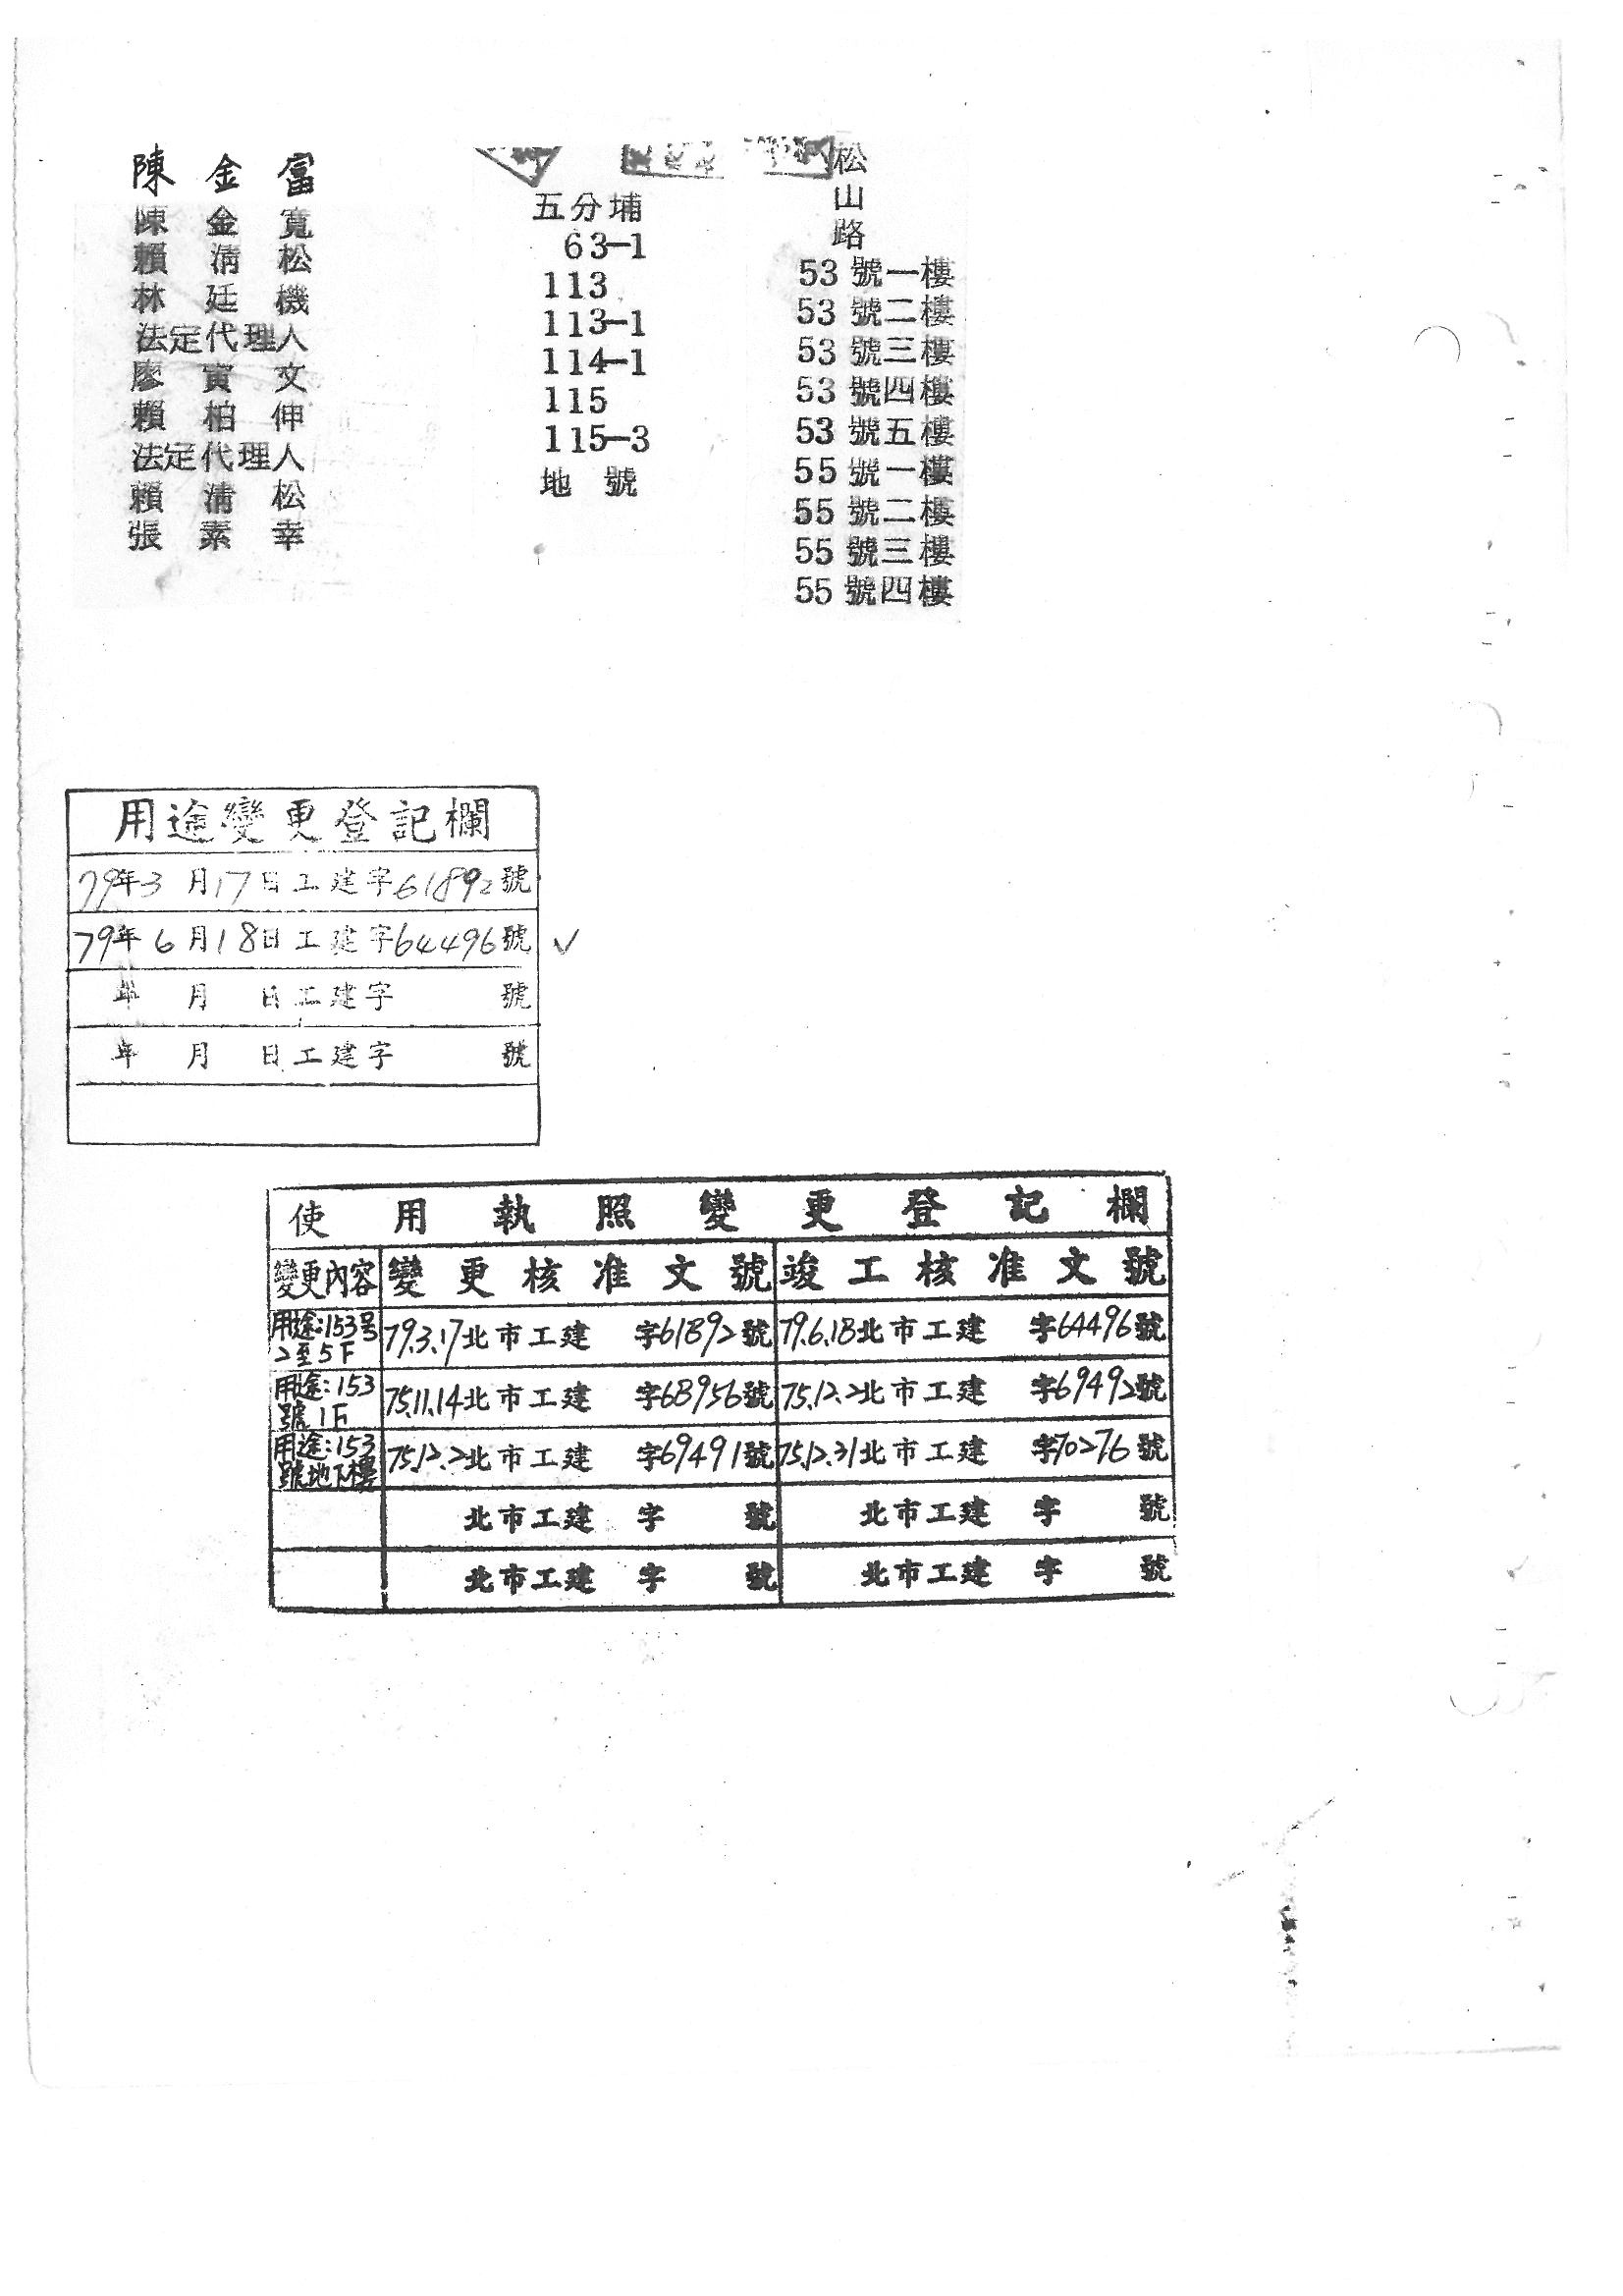 陳金富
陳金寬
賴清松
林廷機
法定代理人
廖寅文
賴柏伸
法定代理人
賴清松
張素幸
五分埔
63-1
113
113-1
114-1
115
115-3
地號
松
山
路
53號一樓
53號二樓
53號三樓
53號四樓
53號五樓
55號一樓
55號二樓
55號三樓
55號四樓
用途變更登記欄
79年3月17日工建字61892號
79年6月18日工建字64496號 ✓
年 月 日工建字 號
年 月 日工建字 號
使用執照變更登記欄
變更內容 變更核准文號 竣工核准文號
用途:153号2至5F 79.3.17北市工建 字61892號 79.6.18北市工建 字64496號
用途:153號1F 75.11.14北市工建 字68956號 75.12.2北市工建 字69492號
用途:153號地下樓 75.12.2北市工建 字69491號 75.12.31北市工建 字70276號
北市工建 字 號 北市工建 字 號
北市工建 字 號 北市工建 字 號